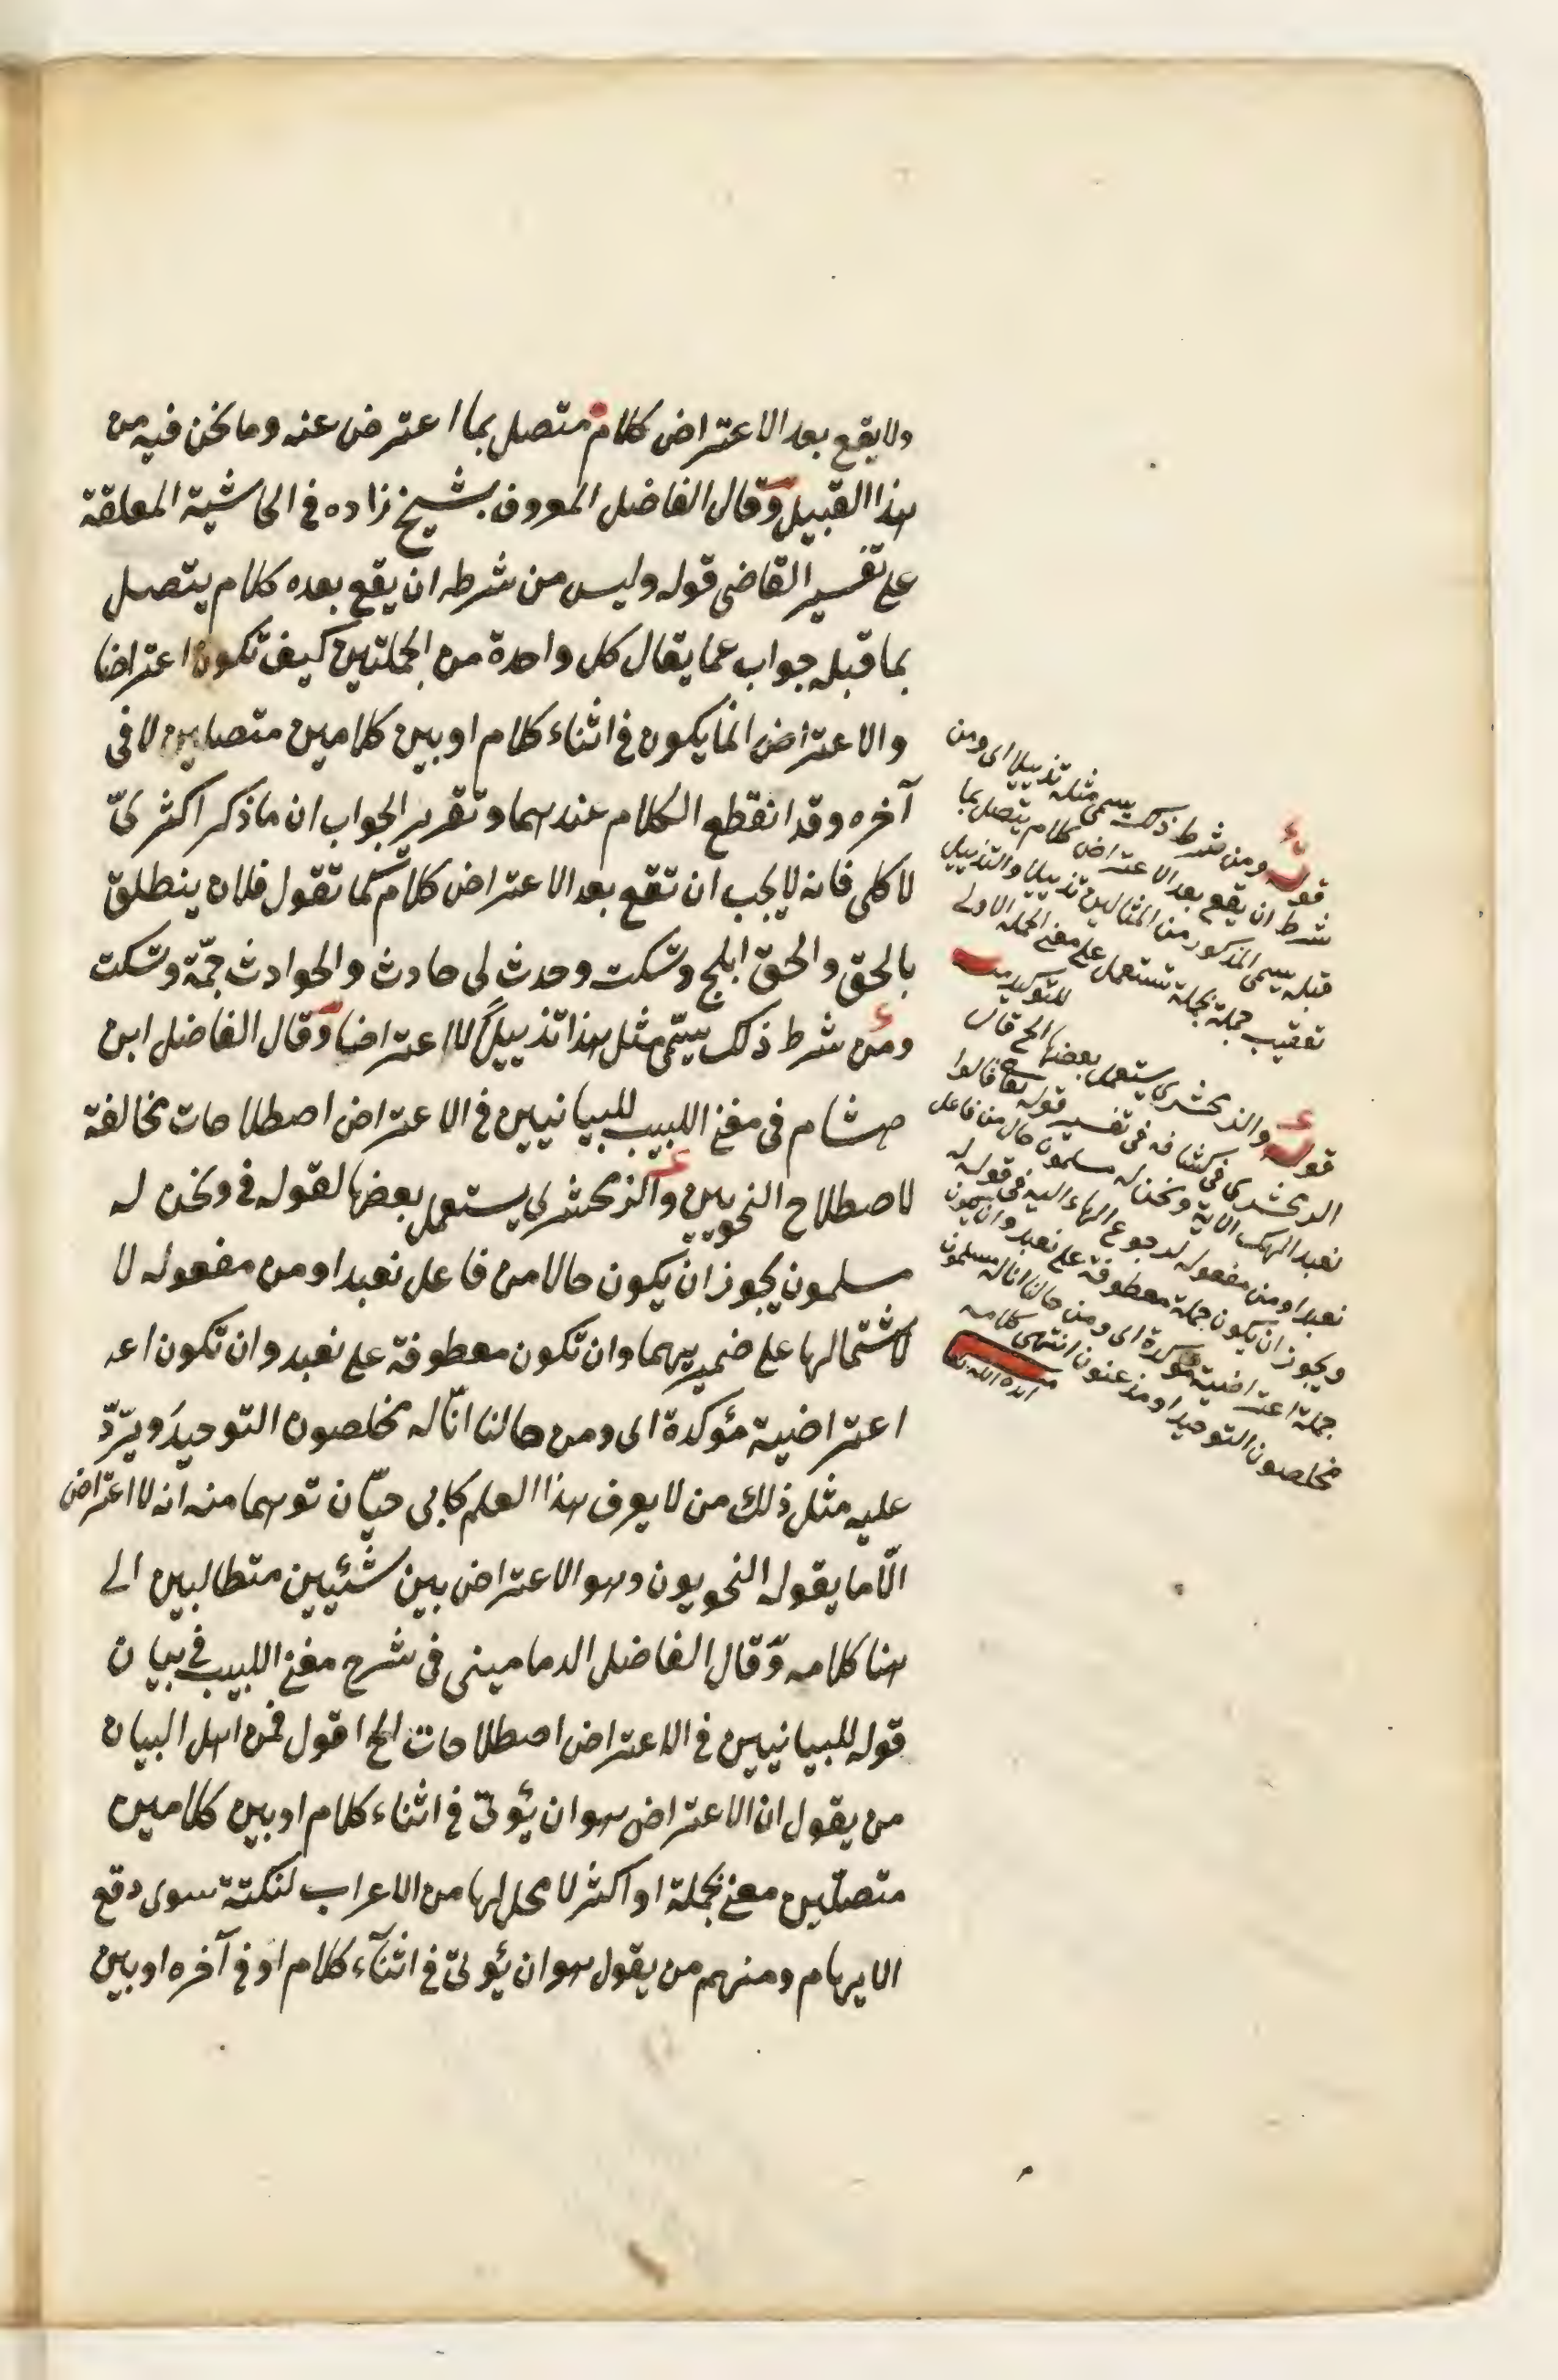 ولا يقع بعد الاعتراض كلام متصل بما اعترض عنه وما نحن فيه من
هذا القبيل وقال الفاضل المعروف بشيخ زاده في الحاشية المعلقة
على تفسير القاضي قوله وليس من شرطه ان يقع بعده كلام يتصل
بما قبله جواب عما يقال كل واحدة من الجملتين كيف تكون اعتراضا
والاعتراض انما يكون في اثناء كلام او بين كلامين متصلين لا في
آخره وقد انقطع الكلام عندهما وتقرير الجواب ان ما ذكر اكثرىّ
لا كلى فانه لا يجب ان تقع بعد الاعتراض كلام كما تقول فلان ينطلق
بالحق والحق ابلج وتسكت وحدث لى حادث والحوادث جمّة وتسكت
ومن شرط ذلك يسمّى مثل هذا تذييلاً لا اعتراضا وقال الفاضل ابن
هشام في مغنى اللبيب للبيانيين في الاعتراض اصطلاحات مخالفة
لاصطلاح النحويين والزمخشرى يستعمل بعضها لقوله في ونحن له
مسلمون يجوز ان يكون حالا من فاعل نعبد او من مفعوله لا
لاشتمالها على ضميريهما وان تكون معطوفة على نعبد وان تكون اعـ
اعتراضية مؤكدة اى ومن حالنا انّا له مخلصون التوحيد ويردّ
عليه مثل ذلك من لا يعرف هذا العلم كابى حيّان توهما منه انه لا اعتراض
الّا ما يقوله النحويون وهو الاعتراض بين شئيين متطالبين الى
هنا كلامه وقال الفاضل الدمامينى في شرح مغنى اللبيب في بيان
قوله للبيانيين في الاعتراض اصطلاحات الخ اقول فمن اهل البيان
من يقول ان الاعتراض هو ان يؤتى في اثناء كلام او بين كلامين
متصلين معنى بجملة او اكثر لا محل لها من الاعراب لنكتة سوى دفع
الايهام ومنهم من يقول هو ان يؤتى في اثنآء كلام او في آخره او بين
قوله ومن شرط ذلك يسمى مثله تذييلا اى ومن
شرط ان يقع بعد الاعتراض كلام يتصل بما
قبله يسمى المذكور من المثالين تذييلا والتذييل
تعقيب جملة بجملة تشتمل على معنى الجملة الاولى
للتوكيد
قوله والزمخشرى يستعمل بعضها الخ قال
الزمخشرى في كشافه في تفسير قوله تعالى قالوا
نعبد الهك الاية ونحن له مسلمون حال من فاعل
نعبد او من مفعوله لرجوع الهاء اليه في قوله له
ويجوز ان يكون جملة معطوفة على نعبد وان يكون
جملة اعتراضية مؤكدة اى ومن حالنا انا له مسلمون
مخلصون التوحيد او مذعنون انتهى كلامه